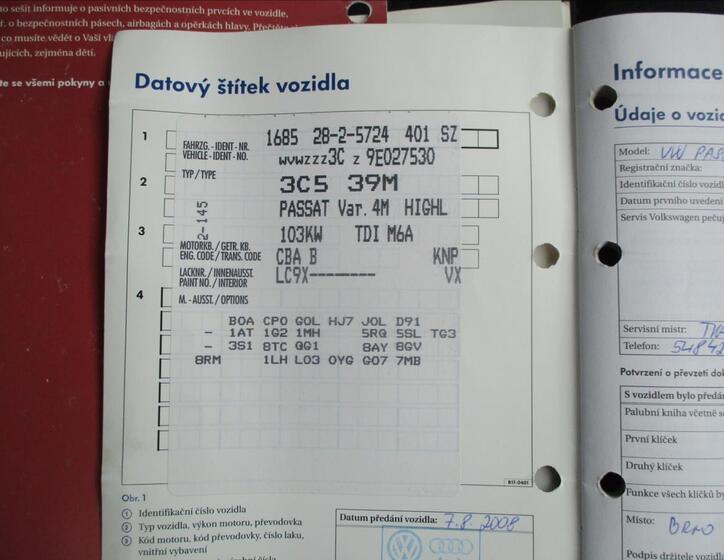 to sešit informuje o pasivních bezpečnostních prvcích ve vozidle,
ř. o bezpečnostních pásech, airbagách a opěrkách hlavy.
co musíte vědět o Vaší
ujících, zejména dětí.
te se všemi pokyny a
Datový štítek vozidla
1
FAHRZG.-IDENT-NR. 1685 28-2-5724 401 SZ
VEHICLE-IDENT-NO. WVWZZZ3C Z 9E027530
2
TYP/TYPE 3C5 39M
PASSAT Var. 4M HIGHL
2-145
3
103KW TDI M6A
MOTORKB./GETR. KB.
ENG. CODE/TRANS. CODE CBA B KNP
LACKNR./INNENAUSST.
PAINT NO./INTERIOR LC9X-------- VX
4
M.-AUSST./OPTIONS
BOA CPO GOL HJ7 JOL D91
- 1AT 1G2 1MH 5RQ 5SL TG3
- 3S1 8TC QG1 8AY 8GV
8RM 1LH LO3 OYG GO7 7MB
B1F-0401
Obr. 1
1 Identifikační číslo vozidla
2 Typ vozidla, výkon motoru, převodovka
3 Kód motoru, kód převodovky, číslo laku,
vnitřní vybavení
Datum předání vozidla: 7.8.2008
Informace
Údaje o vozid
Model: VW PAS
Registrační značka:
Identifikační číslo vozid
Datum prvního uvedení
Servis Volkswagen peču
Servisní mistr:
Telefon: 54842
Potvrzení o převzetí do
S vozidlem bylo předá
Palubní kniha včetně s
První klíček
Druhý klíček
Funkce všech klíčků by
Místo: Brno
Podpis držitele vozidl